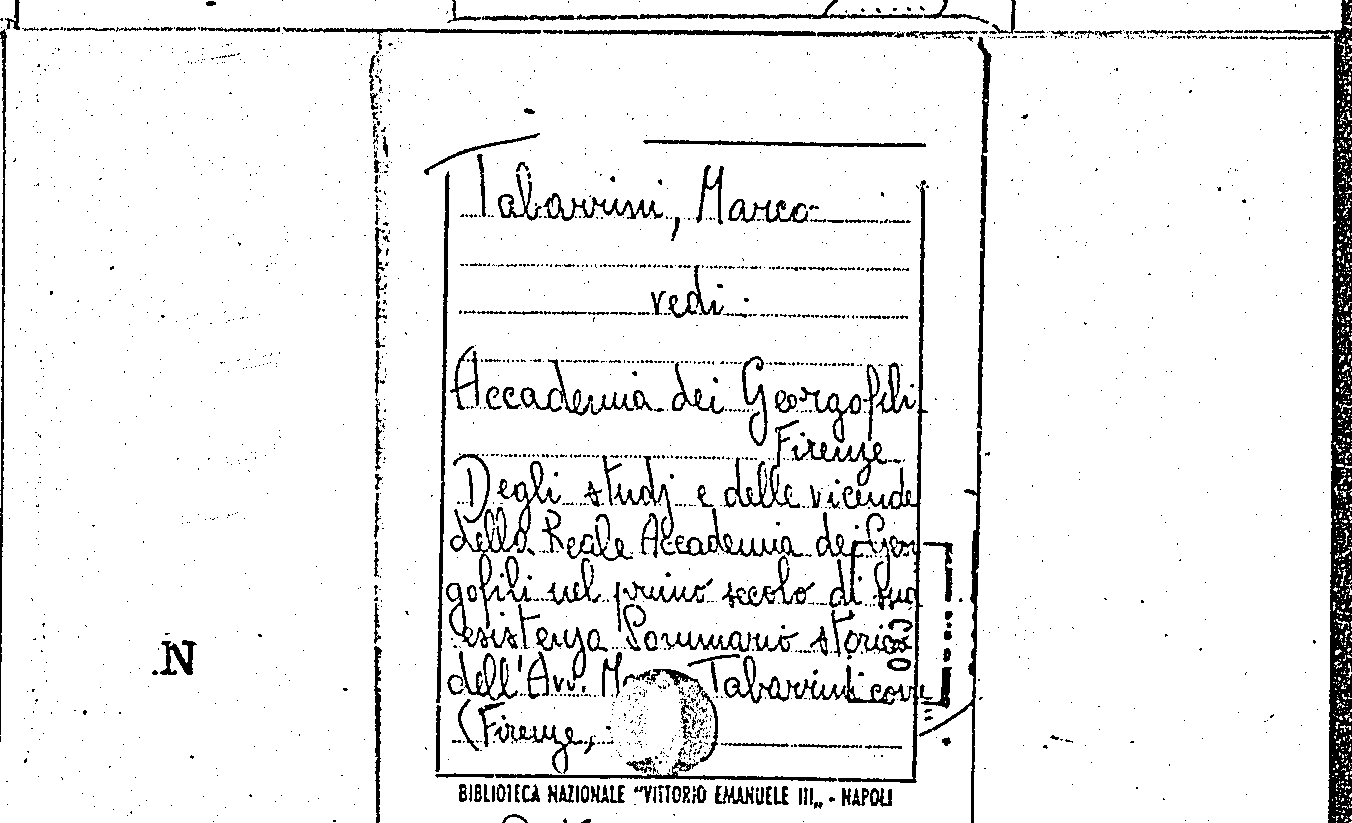 Tabarrini, Marco
vedi:
Accademia dei Georgofili
Firenze
Degli studj e delle vicende
della Reale Accademia dei Geor
gofili nel primo secolo di sua
esistenza Sommario storico
dell'Avv. Tabarrini
(Firenze,
N
BIBLIOTECA NAZIONALE "VITTORIO EMANUELE III„ - NAPOLI